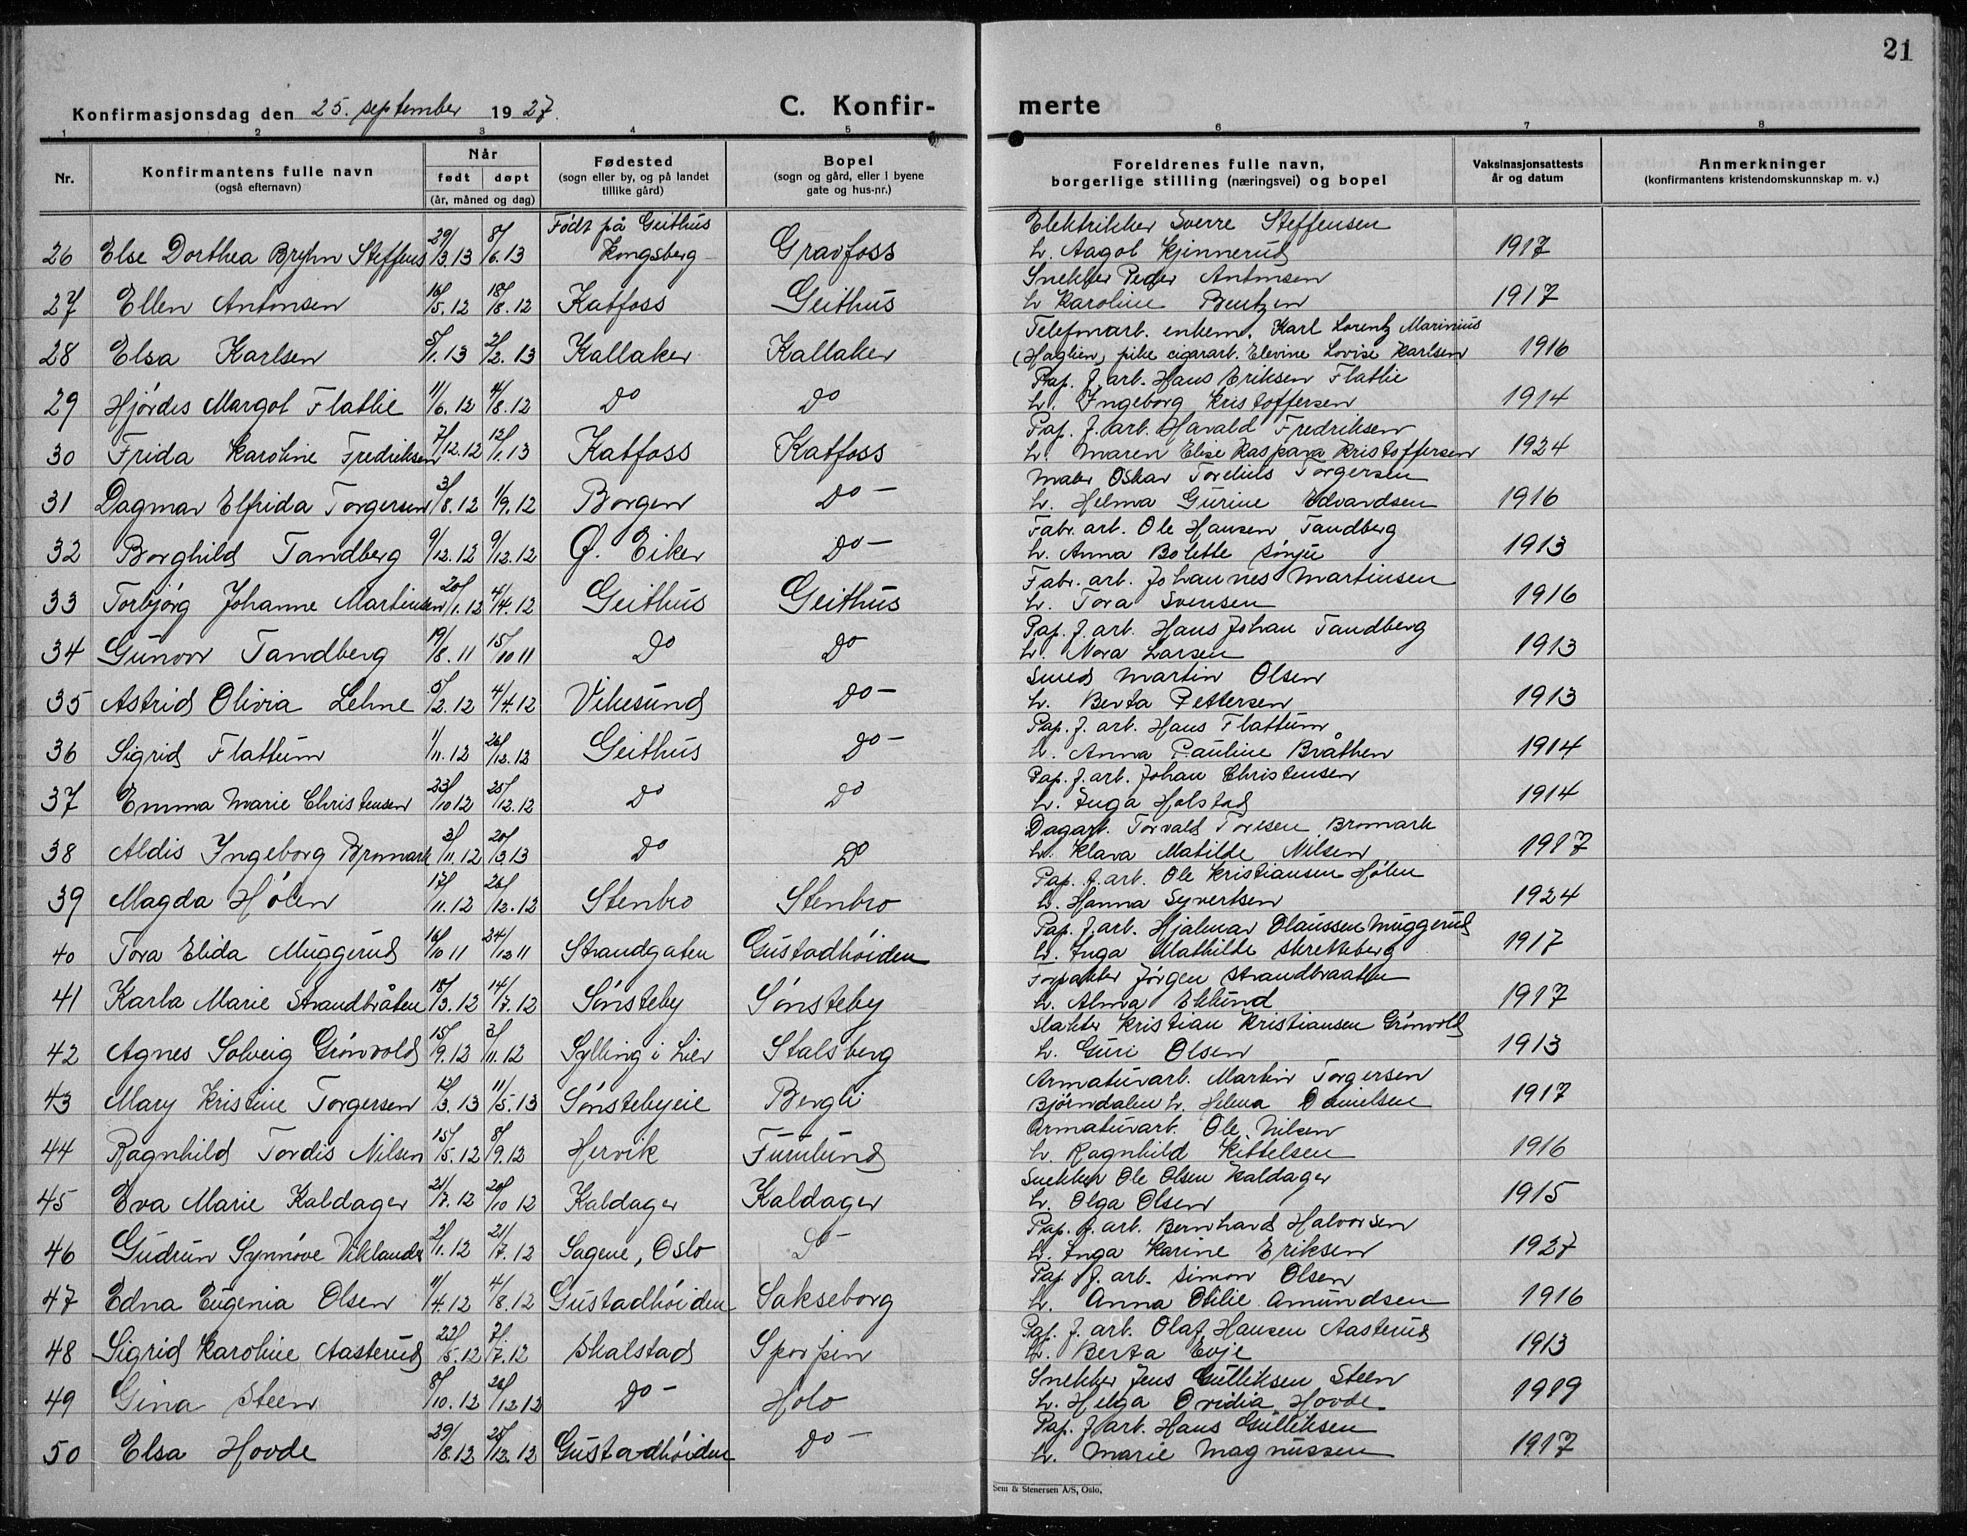 21
Konfirmasjonsdag den 25. september 1927.
C. Konfirmerte
1 2 3 4 5 6 7 8
Nr. | Konfirmantens fulle navn (også efternavn) | Når født døpt (år, måned og dag) | Fødested (sogn eller by, og på landet tillike gård) | Bopel (sogn og gård, eller i byene gate og hus-nr.) | Foreldrenes fulle navn, borgerlige stilling (næringsvei) og bopel | Vaksinasjonsattests år og datum | Anmerkninger (konfirmantens kristendomskunnskap m. v.)
26 Else Dorthea Bryhn Steffens 29/3.13 8/6.13 Født på Geithus Kongsberg Gravfoss Elektrikker Sverre Steffensen h. Aagot Kjinnerud 1917
27 Ellen Antonsen 16/5.12 18/8.12 Katfoss Geithus Snekker Peder Antonsen h Karoline Bentzen 1917
28 Elsa Karlsen 5/1.13 2/2.13 Kallaker Kallaker Telefonarb. enkem. Karl Lorentz Marinius (Haglien) pike cigararb. Elevine Lovise Karlsen 1916
29 Hjørdis Margot Flatlie 11/6.12 4/8.12 Do Do Pap. f. arb. Hans Eriksen Flatlie h. Ingeborg Kristoffersen 1914
30 Frida Karoline Fredriksen 7/12.12 12/1.13 Katfoss Katfoss Pap. f. arb. Havald Fredriksen h. Maren Elise Kaspara Kristoffersen 1924
31 Dagmar Elfrida Torgersen 3/8.12 1/9.12 Borgen Do - Maler Oskar Torelius Torgersen h. Helma Gurine Edvardsen 1916
32 Borghild Tandberg 9/12.12 9/12.12 Ø. Eiker Do - Fabr. arb. Ole Hansen Tandberg h. Anna Bolette Sønju 1913
33 Torbjørg Johanne Martinsen 20/1.12 4/4.12 Geithus Geithus Fabr. arb. Johannes Martinsen h. Tora Svensen 1916
34 Gunvor Tandberg 19/8.11 15/10 11 Do Do Pap. f. arb. Hans Johan Tandberg h. Nora Larsen 1913
35 Astrid Olivia Lehne 5/2.12 4/4.12 Vikesund Do - Smed Martin Olsen h. Berta Pettersen 1913
36 Sigrid Flattum 1/11.12 26/12.12 Geithus Do - Pap. f. arb. Hans Flattum h. Anna Pauline Bråthen 1914
37 Emma Marie Christensen 23/10 12 25/12.12 Do Do Pap. f. arb. Johan Christensen h. Inga Holstad 1914
38 Aldis Ingeborg Bromark 3/11.12 20/3 13 Do Do Dagarb. Torvald Toresen Bromark h. Klara Matilde Nilsen 1917
39 Magda Hølen 17/11.12 26/12.12 Stenbro Stenbro Pap. f. arb. Ole Kristiansen Hølen h. Hanna Syvertsen 1924
40 Tora Elida Muggerud 16/10 11 24/12 11 Strandgaten Gustadhøiden Pap. f. arb. Hjalmar Olaussen Muggerud h. Inga Mathilde Skretteberg 1917
41 Karla Marie Strandbråten 18/3.12 14/7.12 Sønsteby Sønsteby Forpakter Jørgen Strandbraaten h. Alma Eklund 1917
42 Agnes Solveig Grønvold 15/9.12 3/11.12 Sylling i Lier Stalsberg Slakter Kristian Kristiansen Grønvold h. Guri Olsen 1913
43 Mary Kristine Torgersen 12/3.13 11/5.13 Sønstebyeie Bergli Armaturarb. Martin Torgersen Bjørndalen h. Helma Danielsen 1917
44 Ragnhild Tordis Nilsen 15/5.12 8/9.12 Hervik Furulund Armaturarb. Ole Nilsen h. Ragnhild Kittelsen 1916
45 Eva Marie Kaldager 21/7.12 20/10 12 Kaldager Kaldager Snekker Ole Olsen Kaldager h. Olga Olsen 1915
46 Gudrun Synnøve Viklander 2/1.12 21/7.12 Sagene, Oslo Do - Pap. f. arb. Bernhard Halvorsen h. Inga Karine Eriksen 1927
47 Edna Eugenia Olsen 11/4.12 4/8.12 Gustadhøiden Sakseborg Pap. f. arb. Simon Olsen h. Anna Otilie Amundsen 1916
48 Sigrid Karoline Aasterud 22/5.12 7/7.12 Skalstad Sporpin Pap. f. arb. Olaf Hansen Aasterud h. Berta Evje 1913
49 Gina Steen 8/10.12 26/12 12 Do - Holo Snekker Jens Gulliksen Steen h. Helga Ovidia Hovde 1919
50 Elsa Hovde 29/8.12 25/12.12 Gustadhøiden Do - Pap. f. arb. Hans Gulliksen h. Marie Magnussen 1917
Sem & Stenersen A/S, Oslo.